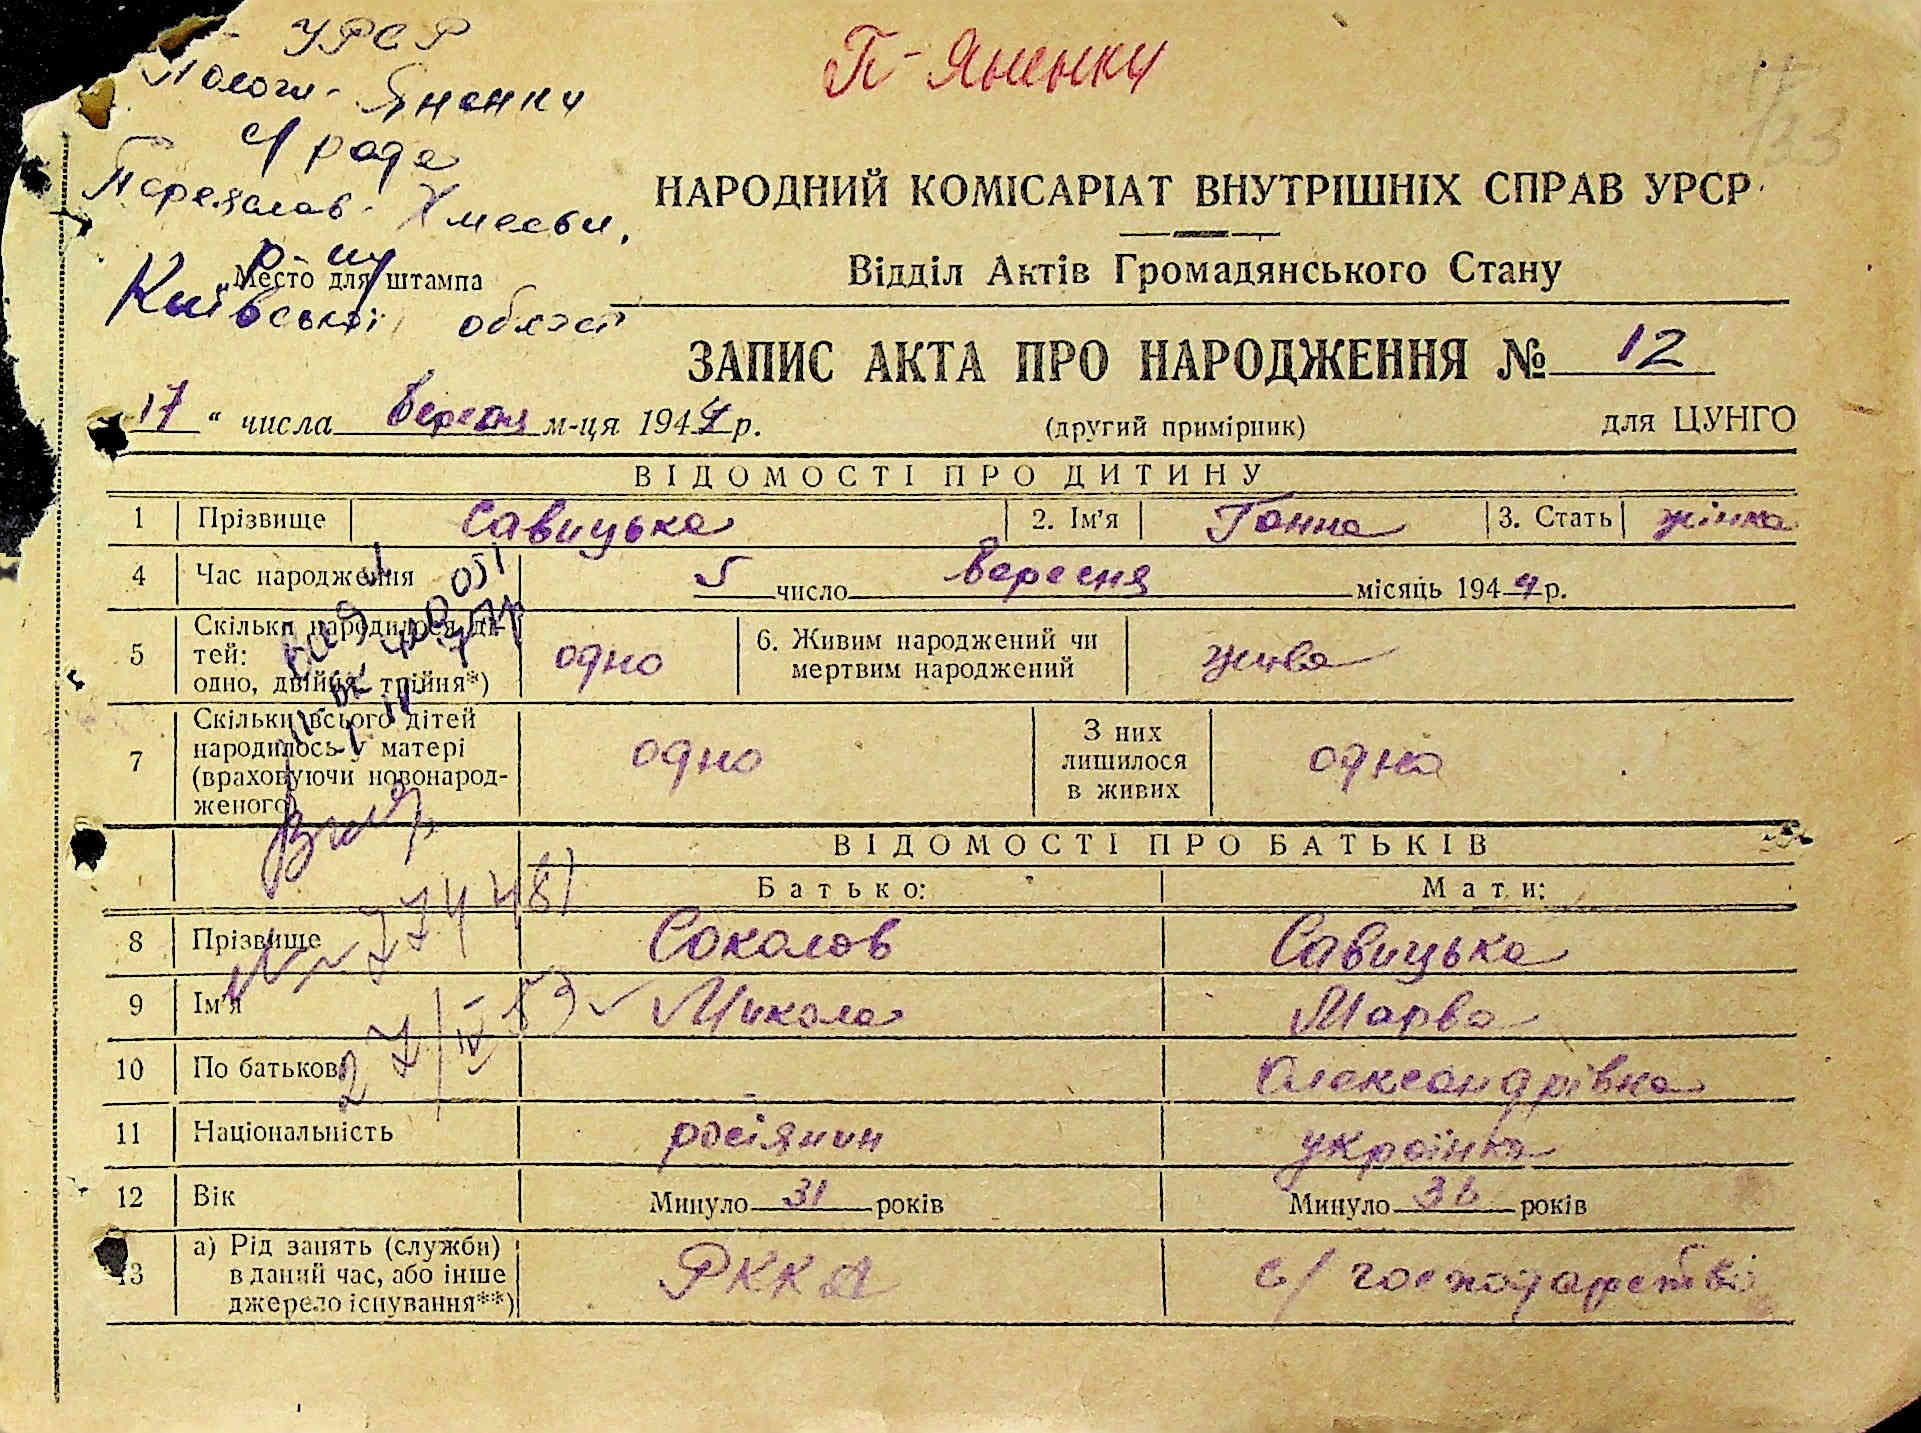 УРСР
П-Яненки
Пологи-Яненки
с/рада
Переяслав-Хмельн.
р-ну
Київської області
Место для штампа
НАРОДНИЙ КОМІСАРІАТ ВНУТРІШНІХ СПРАВ УРСР
Відділ Актів Громадянського Стану
ЗАПИС АКТА ПРО НАРОДЖЕННЯ № 12
17 " числа вересня м-ця 1944 р. (другий примірник) для ЦУНГО
ВІДОМОСТІ ПРО ДИТИНУ
1 Прізвище Савицька 2. Ім'я Ганна 3. Стать жінка
4 Час народження 5 число вересня місяць 1944 р.
5 Скільки народилося ді-
тей:
одно, двійня, трійня*) одно 6. Живим народжений чи
мертвим народжений жива
7 Скільки всього дітей
народилось у матері
(враховуючи новонарод-
женого) одно З них
лишилося
в живих одна
ВІДОМОСТІ ПРО БАТЬКІВ
Батько: Мати:
8 Прізвище Соколов Савицька
№ 274481
9 Ім'я Микола Марва
27/IV-53
10 По батькові Олександрівна
11 Національність росіянин українка
12 Вік Минуло 31 років Минуло 36 років
13 а) Рід занять (служби)
в даний час, або інше
джерело існування**) РККА с/господарстві